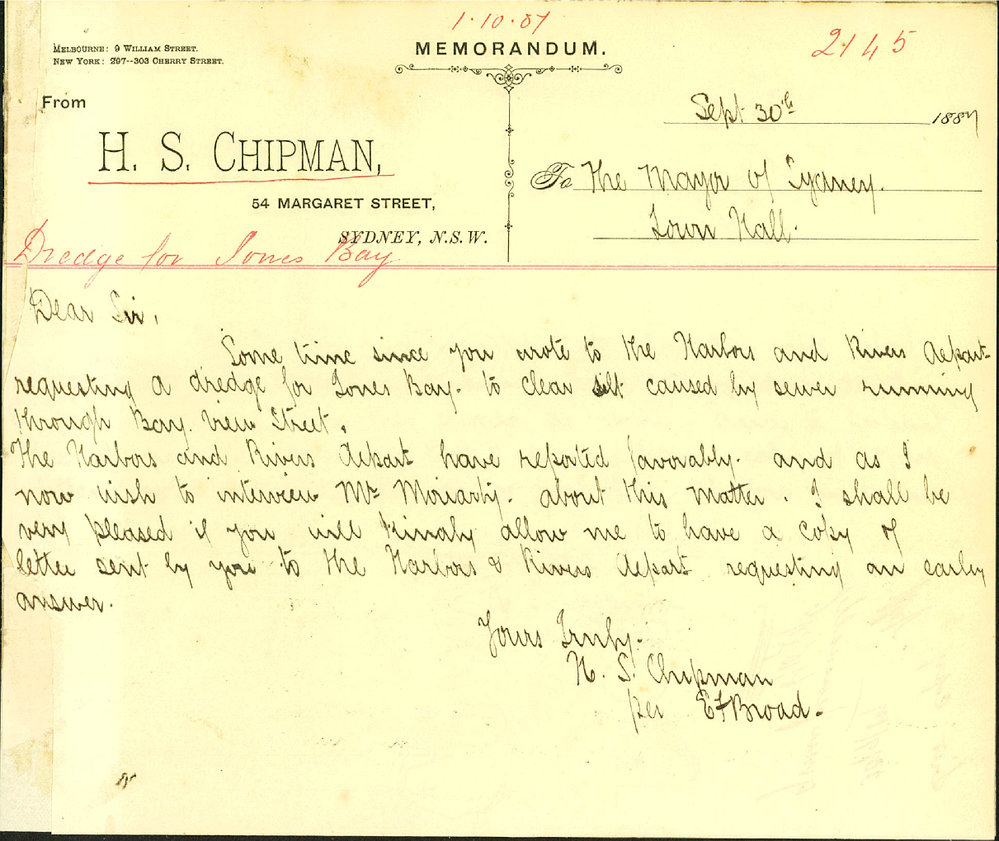 1.10.87
2145
MELBOURNE: 9 WILLIAM STREET.
NEW YORK: 297--303 CHERRY STREET.
MEMORANDUM.
From
H. S. CHIPMAN,
54 MARGARET STREET,
SYDNEY, N.S.W.
Sept 30th 1887
To The Mayor of Sydney.
Town Hall.
Dredge for Jones Bay
Dear Sir,
Some time since you wrote to the Harbors and Rivers Depart
requesting a dredge for Jones Bay. to clear silt caused by sewer running
through Bay View Street.
The Harbors and Rivers Depart have reported favorably. and as I
now wish to interview Mr Moriarty. about this matter. I shall be
very pleased if you will kindly allow me to have a copy of
letter sent by you to the Harbors & Rivers Depart requesting an earley
answer.
Yours Truly.
H. S. Chipman
per E F Broad.